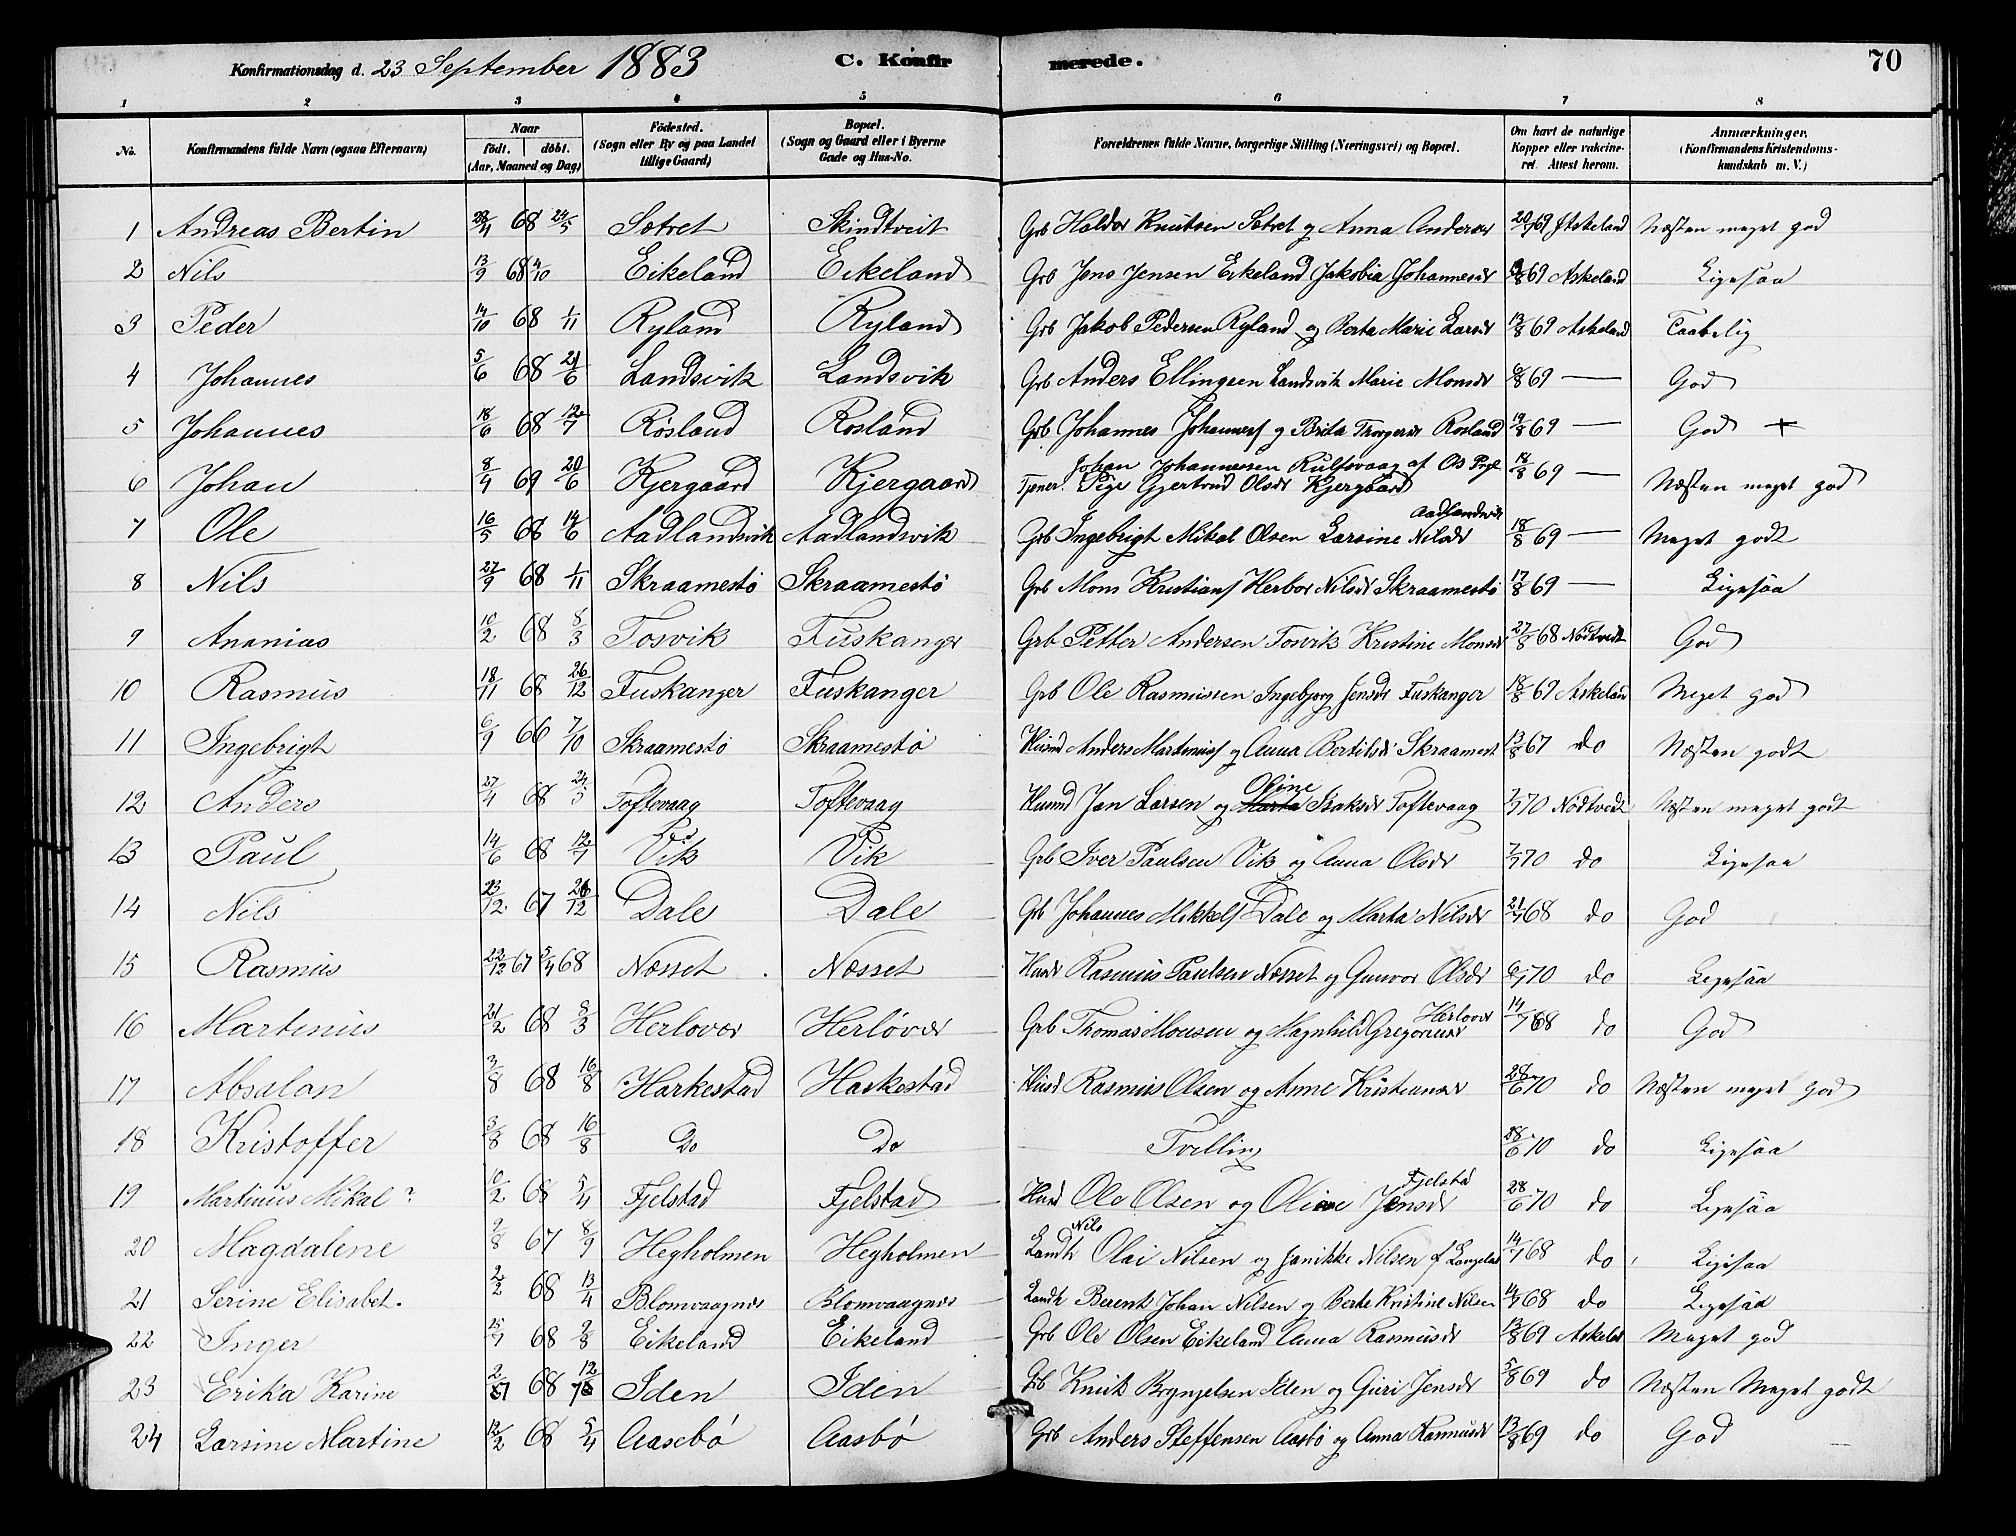 Konfirmationsdag d. 23 September 1883 C. Konfir merede. 70
1 2 3 4 5 6 7 8
No. Konfirmandens fulde Navn (ogsaa Efternavn) Naar födt. döbt. (Aar, Maaned og Dag) Födested. (Sogn eller By og paa Landet tillige Gaard) Bopæl. (Sogn og Gaard eller i Byerne Gade og Hus-No. Forældrenes fulde Navne, borgerlige Stilling (Næringsvei) og Bopæl. Om havt de naturlige Kopper eller vakcineret. Attest herom. Anmærkninger. (Konfirmandens Kristendomskundskab m. V.)
1 Andreas Bertin 28/4 68 24/5 Sotret Skindtveit Grb Haldor Knutsen Sotret og Anna Andersdr 69 Askeland Næsten meget god
2 Nils 13/9 68 4/10 Eikeland Eikeland Grb Jens Jensen Eikeland Jakobia Johannesdr 69 Askeland Ligesaa
3 Peder 14/10 68 1/11 Ryland Ryland Grb Jakob Pedersen Ryland og Berta Marie Larsdr 13/8 69 Askeland Taabelig
4 Johannes 5/6 68 21/6 Landsvik Landsvik Grb Anders Ellingsen Landsvik Marie Monsdr 69 — God
5 Johannes 18/6 68 12/7 Rösland Rosland Grb Johannes Johanness og Brita Rosland 19/8 69 — God +
6 Johan 8/4 69 20/6 Kjergaard Kjergaard Johan Johannessen af Os Prgl Tjener. Pige Gjertrud Olsdr Kjergaard 18/8 69 — Næsten meget god
7 Ole 16/5 68 14/6 Aadlandsvik Aadlandsvik Grb Ingebrigt Mikal Olsen Larsine Nilsdr Aadlandsvik 18/8 69 — Meget godt
8 Nils 27/9 68 1/11 Skraamestö Skraamestö Grb Mons Kristians Herbor Nilsdr Skraamestö 17/8 69 — Ligesaa
9 Ananias 16/2 68 8/3 Tosvik Fuskanger Grb Petter Andersen Tosvik Kristine Monsdr 27/8 68 Nödtvedt God
10 Rasmus 18/11 68 26/12 Fuskanger Fuskanger Grb Ole Rasmussen Ingebjorg Jensdr Fuskanger 18/8 69 Askelan Meget god
11 Ingebrigt 6/9 66 7/10 Skraamestö Skraamestö Husmd Anders Martinus og Anna Bertilsdr Skraamest 13/8 67 do Næsten godt
12 Anders 27/4 68 24/5 Toftevaag Toftevaag Husmd Jan Larsen og Marta Oline Isaksdr Toftevaag 7/7 70 Nödtvedt Næsten meget godt
13 Paul 14/6 68 12/7 Vik Vik Grb Iver Paulsen Vik og Anna Olsdr 7/7 70 do Ligesaa
14 Nils 23/12 67 26/12 Dale Dale Grb Johannes Mikkels Dale og Marta Nilsdr 21/7 68 do God
15 Rasmus 22/12 67 5/4 68 Næsset Næsset Husd Rasmus Paulsen Næsset og Gunvor Olsdr 6/7 70 do Ligesaa
16 Martinus 21/2 68 8/3 Herlover Herlöver Grb Thomas Monsen og Magnhild Gregoriusdr Herlover 14/7 68 do God
17 Absalon 3/8 68 16/8 Harkestad Harkestad Husd Rasmus Olsen og Anne Kristiansdr 28/6 70 do Næsten meget god
18 Kristoffer 3/8 68 16/8 Do Do Tvilling 28/6 70 do Ligesaa
19 Martinus Mikal? 10/2 68 5/4 Fjelstad Fjelstad Husd Ole Olsen og Oline Jensdr Fjelstad 28/6 70 do Ligesaa
20 Magdalene 9/8 67 8/9 Hegholmen Hegholmen Landh Nils Olai Nilsen og Janikke Nilsen f. 14/7 68 do Ligesaa
21 Serine Elisabet. 2/2 68 13/4 Blomvaagnes Blomvaagnes Landh Berent Johan Nilsen og Berte Kristine Nilsen 14/7 68 do Ligesaa
22 Inger 15/7 68 9/8 Eikeland Eikeland Grb Ole Olsen Eikeland Anna Rasmusdr 13/8 69 Askeld Meget god
23 Erika Karine 68 Iden Iden Grb Knut Brynjelsen Iden og Guri Jensdr 5/8 69 do Næsten Meget godt
24 Larsine Martine 12/2 68 5/4 Aasebö Aasbö Grb Anders Steffensen Aasbö og Anna Rasmusdr 13/8 69 do God